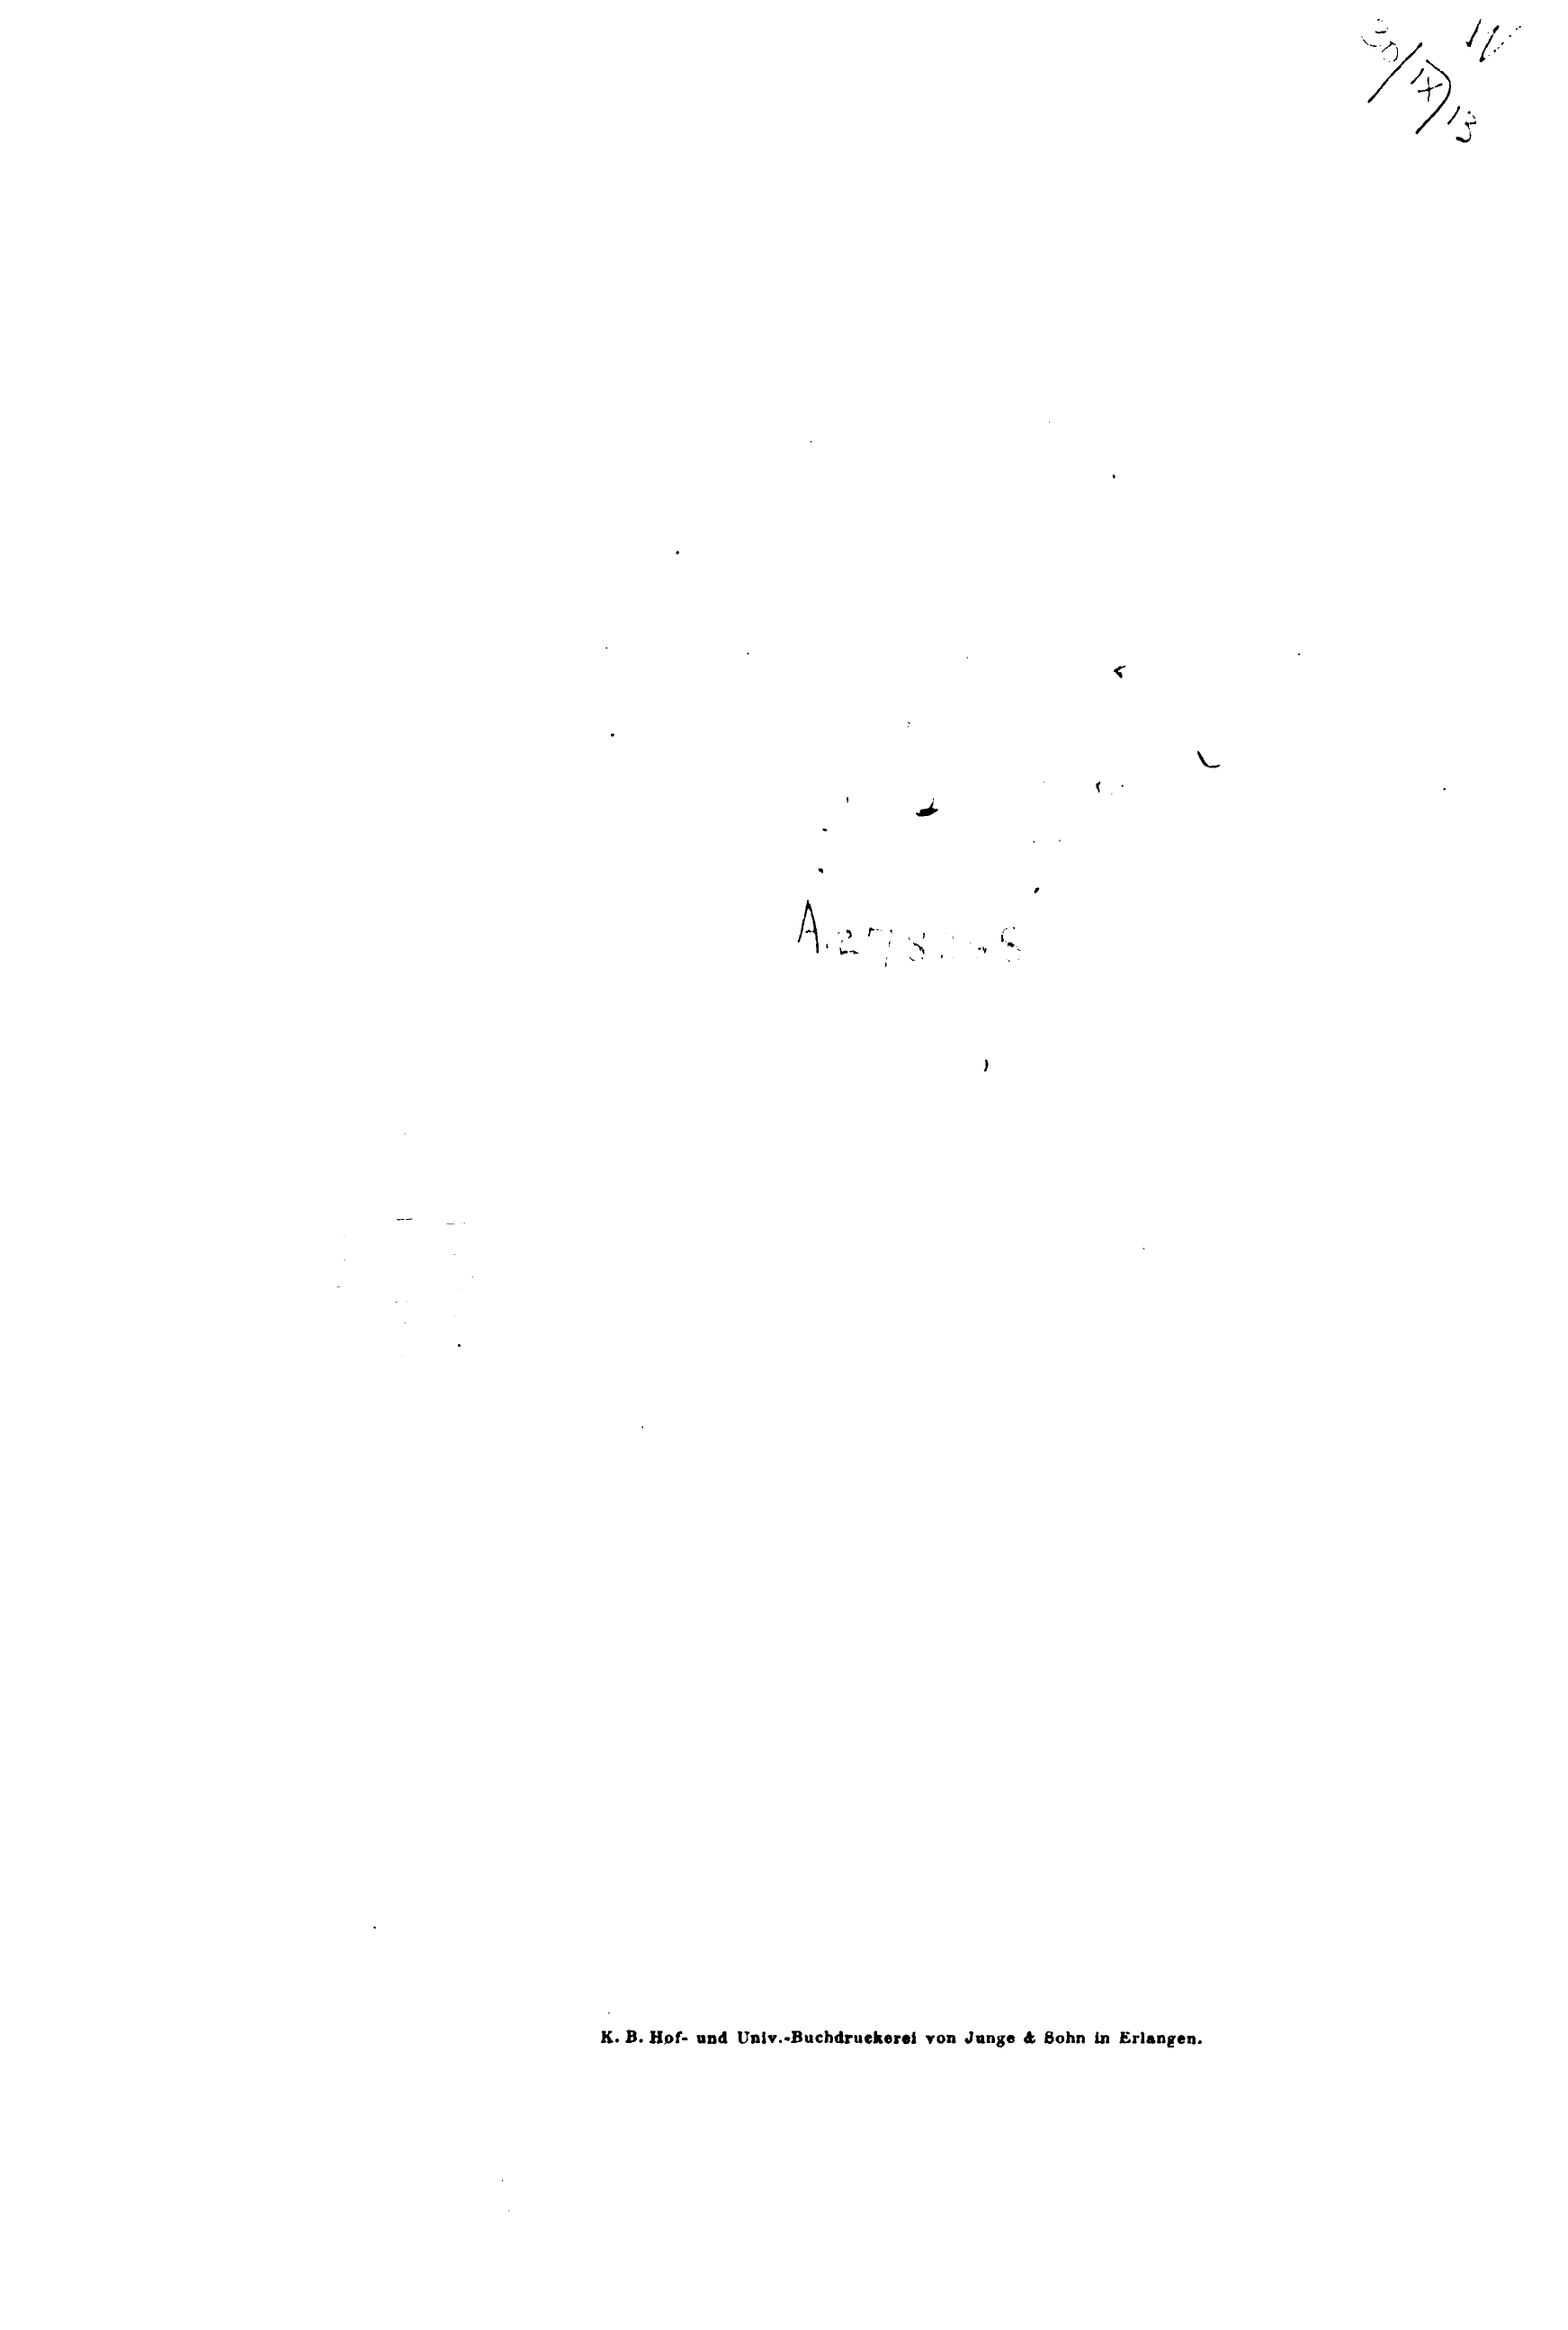 30/IX/13
K. B. Hof- und Univ.-Buchdruckerei von Junge & Sohn in Erlangen.